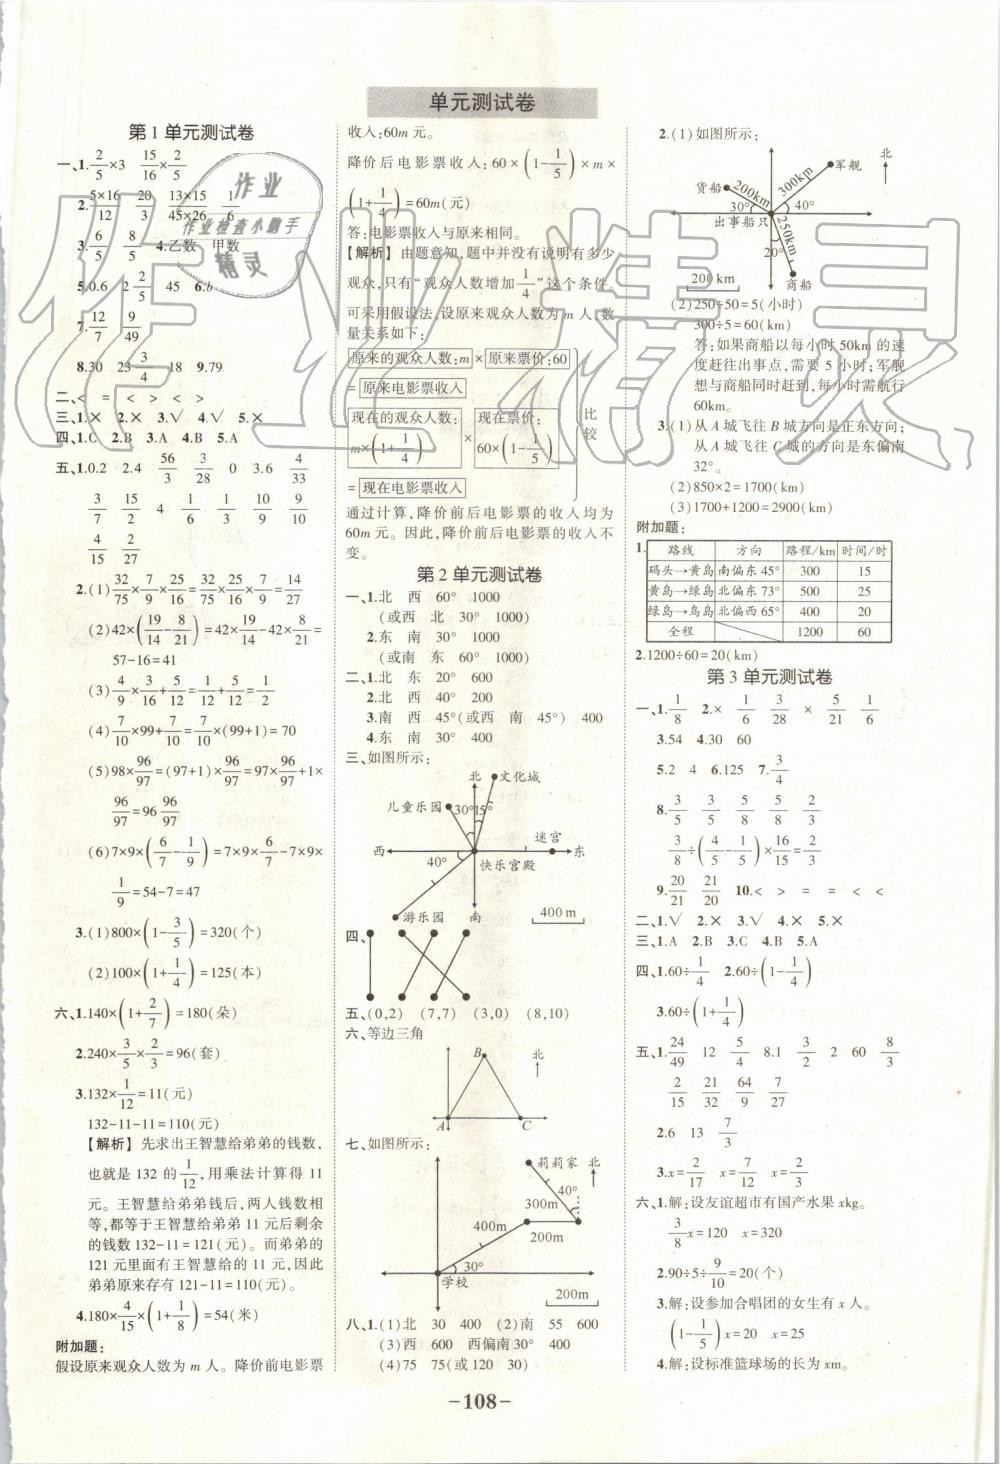 单元测试卷
第1单元测试卷
一、1.2/5×3 15/16×2/5
2.5×16/12 20/3 13×15/45×26 1/6
3.6/5 8/5 4.乙数 甲数
5.0.6 2 2/5 45 6.b
7.12/7 9/49
8.30 23 3/4 18 9.79
二、< = < > < >
三、1.× 2.× 3.√ 4.√ 5.×
四、1.C 2.B 3.A 4.B 5.A
五、1.0.2 2.4 56/3 3/28 0 3.6 4/33
3/7 15/2 4 1/6 1/3 10/9 9/10
4/15 2/27
2.(1)32/75×7/9×25/16=32/75×25/16×7/9=14/27
(2)42×(19/14-8/21)=42×19/14-42×8/21=
57-16=41
(3)4/9×3/16+5/12=1/12+5/12=1/2
(4)7/10×99+7/10=7/10×(99+1)=70
(5)98×96/97=(97+1)×96/97=97×96/97+1×
96/97=96 96/97
(6)7×9×(6/7-1/9)=7×9×6/7-7×9×
1/9=54-7=47
3.(1)800×(1-3/5)=320(个)
(2)100×(1+1/4)=125(本)
六、1.140×(1+2/7)=180(朵)
2.240×3/5×2/3=96(套)
3.132×1/12=11(元)
132-11-11=110(元)
【解析】 先求出王智慧给弟弟的钱数,
也就是 132 的1/12,用乘法计算得 11
元。王智慧给弟弟钱后,两人钱数相
等,都等于王智慧给弟弟 11 元后剩余
的钱数 132-11=121(元)。而弟弟的
121 元里面有王智慧给的 11 元,因此
弟弟原来存有 121-11=110(元)。
4.180×4/15×(1+1/8)=54(米)
附加题:
假设原来观众人数为 m 人。降价前电影票
收入:60m 元。
降价后电影票收入:60×(1-1/5)×m×
(1+1/4)=60m(元)
答:电影票收入与原来相同。
【解析】 由题意知,题中并没有说明有多少
观众,只有“观众人数增加1/4”这个条件。
可采用假设法,设原来观众人数为 m 人,数
量关系如下:
原来的观众人数:m × 原来票价:60
= 原来电影票收入
现在的观众人数:m×(1+1/4) × 现在票价:60×(1-1/5)
= 现在电影票收入
比较
通过计算,降价前后电影票的收入均为
60m 元。因此,降价前后电影票的收入不
变。
第2单元测试卷
一、1.北 西 60° 1000
(或西 北 30° 1000)
2.东 南 30° 1000
(或南 东 60° 1000)
二、1.北 东 20° 600
2.北 西 40° 200
3.南 西 45°(或西 南 45°) 400
4.东 南 30° 400
三、如图所示:
北 文化城
儿童乐园 30° 15°
迷宫
西 东
40° 快乐宫殿
游乐园 南 400 m
四、
五、(0,2) (7,7) (3,0) (8,10)
六、等边三角
B 北
A C
七、如图所示:
莉莉家 北
40°
300m
400m
200m
30°
学校
200m
八、1.(1)北 30 400 (2)南 55 600
(3)西 600 西偏南30° 400
(4)75 75(或 120 30)
2.(1)如图所示:
军舰 北
货船 200km 300km
30° 40°
出事船只
20° 250km
200 km 商船
(2)250÷50=5(小时)
300÷5=60(km)
答:如果商船以每小时 50km 的速
度赶往出事点,需要 5 小时;军舰
想与商船同时赶到,每小时需航行
60km。
3.(1)从 A 城飞往 B 城方向是正东方向;
从 A 城飞往 C 城的方向是东偏南
32°。
(2)850×2=1700(km)
(3)1700+1200=2900(km)
附加题:
1.
路线 方向 路程/km 时间/时
码头→黄岛 南偏东 45° 300 15
黄岛→绿岛 北偏东 73° 500 25
绿岛→鸟岛 北偏西 65° 400 20
全程 1200 60
2.1200÷60=20(km)
第3单元测试卷
一、1.1/8 2.× 1/6 3/28 × 5/21 1/6
3.54 4.30 60
5.2 4 6.125 7.3/4
8.3/5 5/3 5/8 5/8 2/3
3/8÷(4/5-1/5)×16/15=2/3
9.20/21 21/20 10.< > = = < <
二、1.√ 2.× 3.√ 4.× 5.×
三、1.A 2.B 3.C 4.B 5.A
四、1.60÷1/4 2.60÷(1-1/4)
3.60÷(1+1/4)
五、1.24/49 12 5/4 8.1 3/2 2 60 8/3
2/15 21/32 64/9 7/27
2.6 13 7/3
3.x=2/17 x=7/12 x=2/3
六、1.解:设友谊超市有国产水果 xkg。
3/8x=120 x=320
2.90÷5÷9/10=20(个)
3.解:设参加合唱团的女生有 x 人。
(1-1/5)x=20 x=25
4.解:设标准篮球场的长为 xm。
-108-
作业
作业检查小助手
精灵
作业精灵